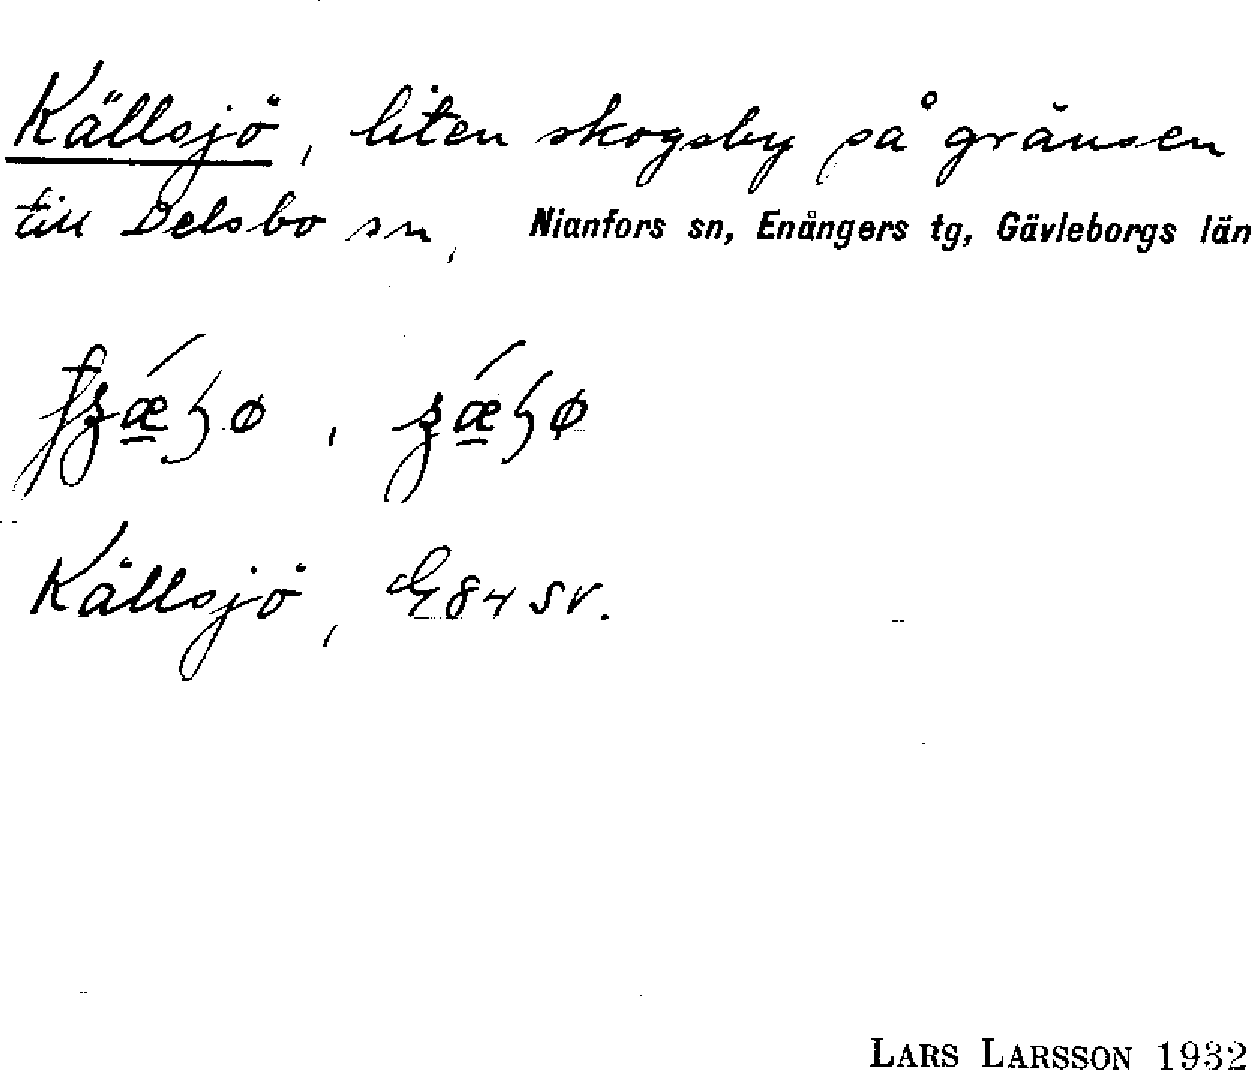 Källsjö, liten skogsby på gränsen
till Delsbo sn, Nianfors sn, Enångers tg, Gävleborgs län
Källsjö, E 84 sv.
LARS LARSSON 1932